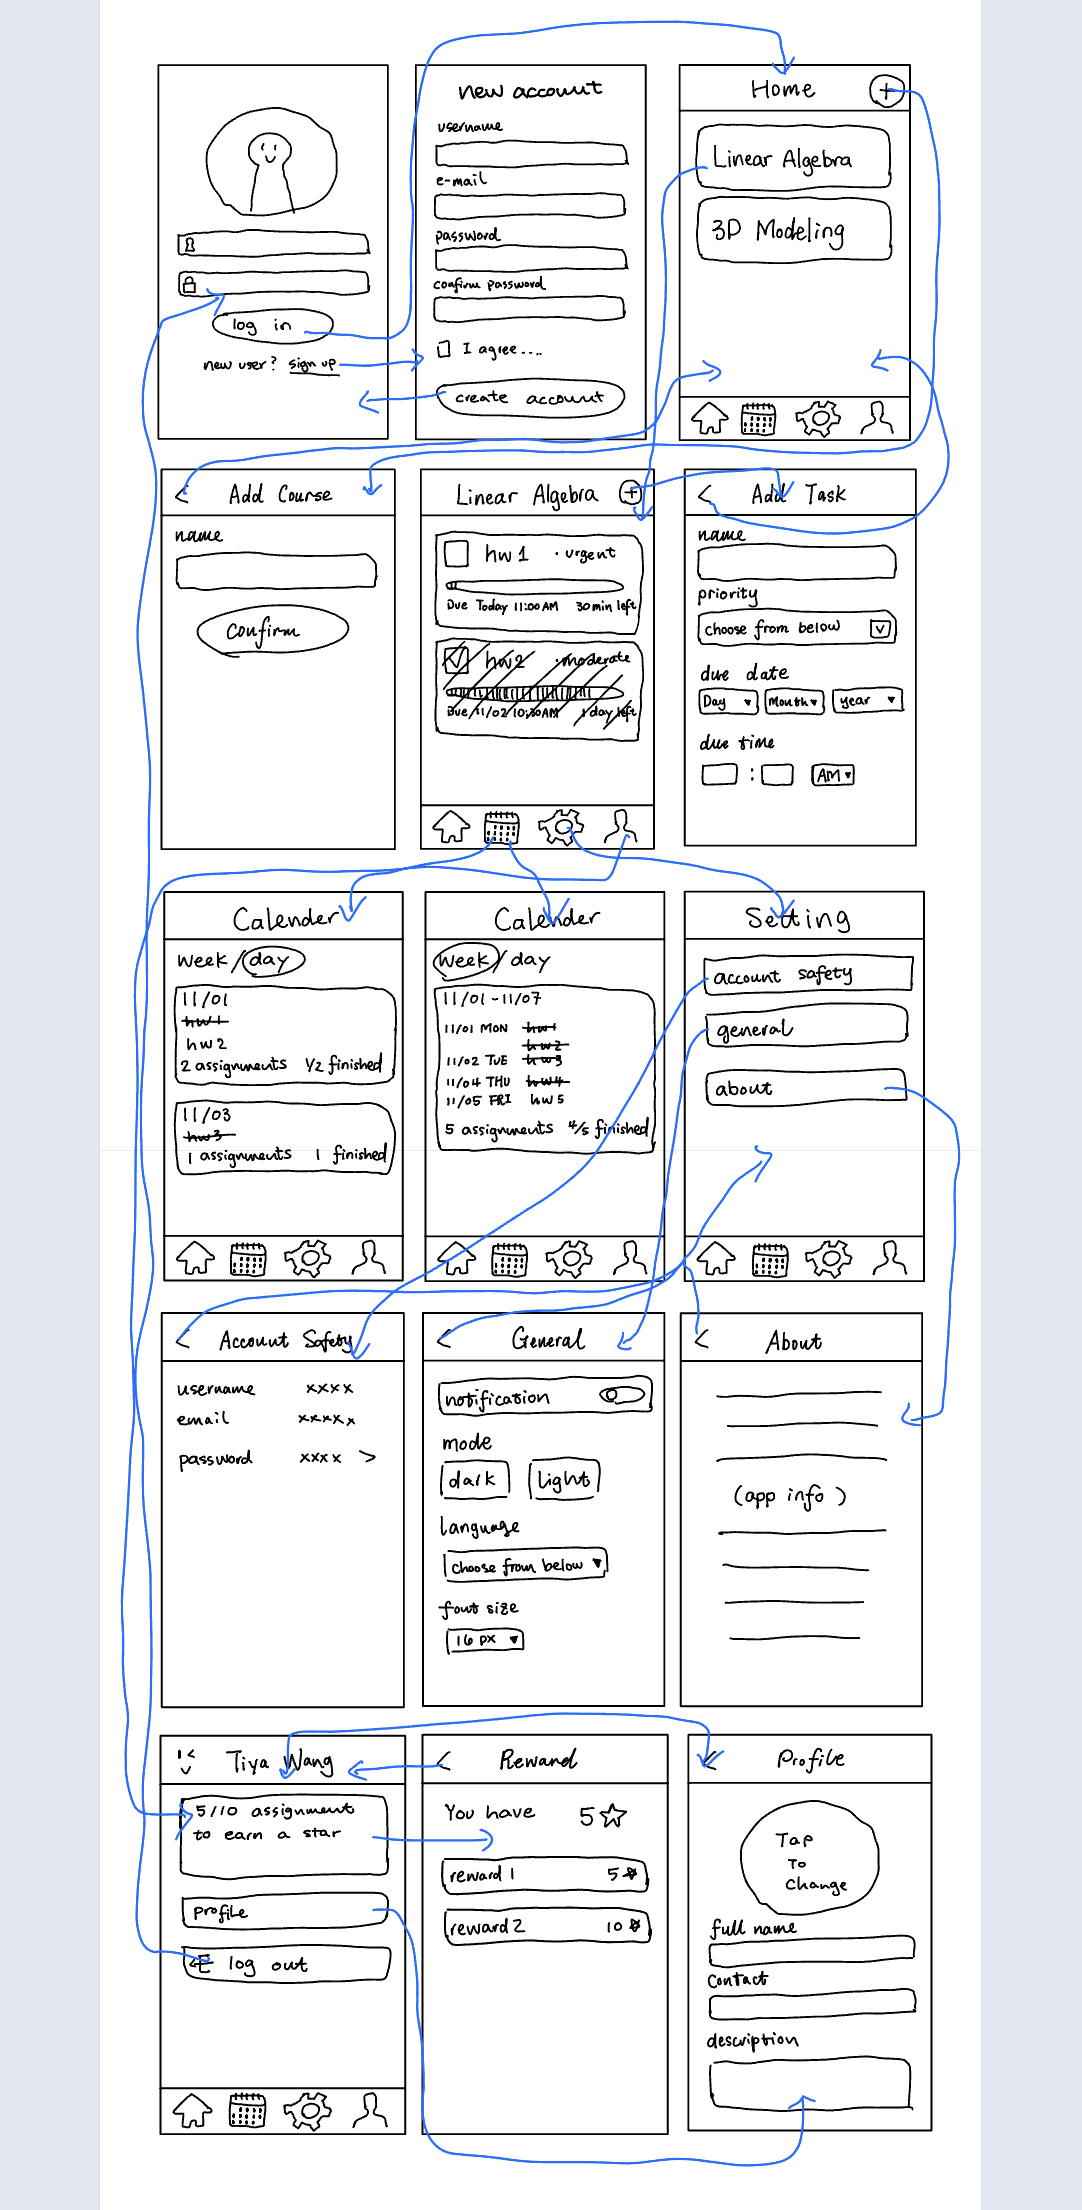 log in
new user? sign up
new account
username
e-mail
password
confirm password
I agree....
create account
Home +
Linear Algebra
3D Modeling
< Add Course
name
Confirm
Linear Algebra +
hw 1 · urgent
Due Today 11:00 AM 30 min left
hw2 · moderate
Due 11/02 10:30AM 1 day left
< Add Task
name
priority
choose from below
due date
Day Month year
due time
: AM
Calender
week/day
11/01
hw1
hw2
2 assignments 1/2 finished
11/03
hw3
1 assignments 1 finished
Calender
week/day
11/01-11/07
11/01 MON hw1
hw2
11/02 TUE hw3
11/04 THU hw4
11/05 FRI hw5
5 assignments 4/5 finished
Setting
account safety
general
about
< Account Safety
username xxxx
email xxxxx
password xxxx >
< General
notification
mode
dark light
language
choose from below
font size
16 px
< About
(app info)
Tiya Wang
5/10 assignment
to earn a star
profile
log out
< Reward
You have 5
reward 1 5
reward 2 10
< Profile
Tap
To
Change
full name
Contact
description